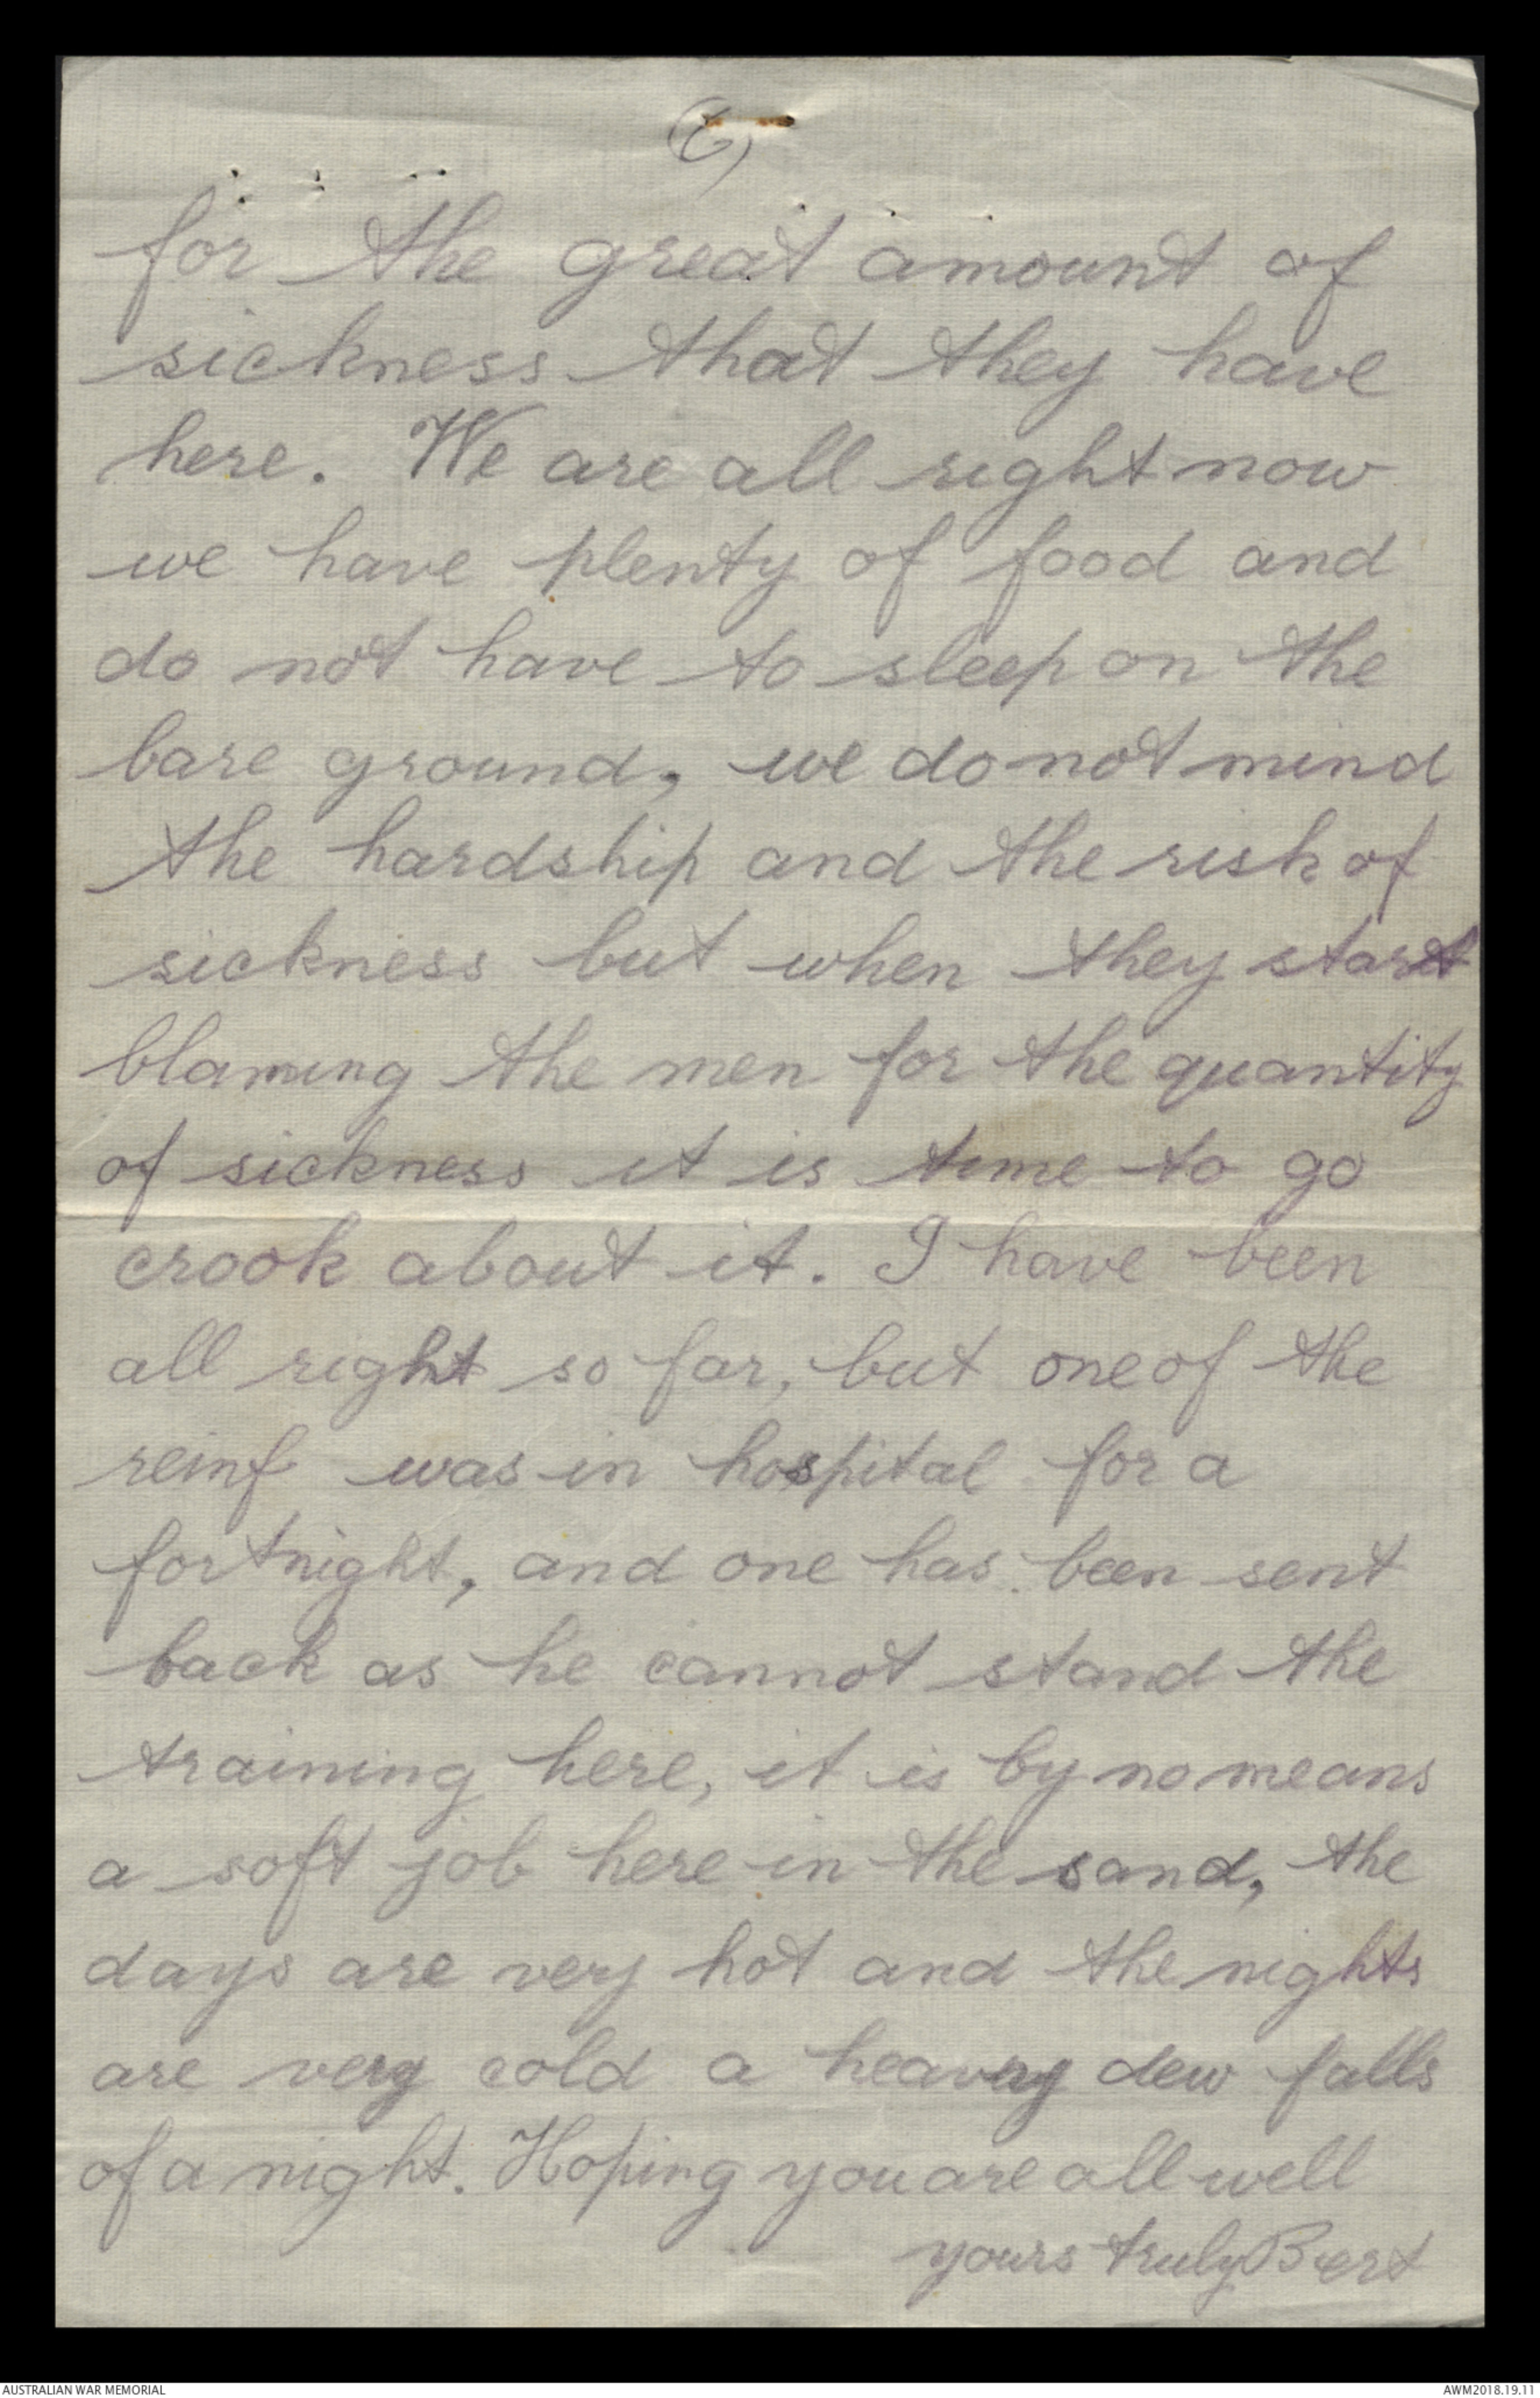 (6)
for the great amount of
sickness that they have
here. We are all right now
we have plenty of food and
do not have to sleep on the
bare ground, we do not mind
the hardship and the risk of
sickness but when they start
blaming the men for the quantity
of sickness it is time to go
crook about it. I have been
all right so far, but one of the
reinf was in hospital for a
fortnight, and one has been sent
back as he cannot stand the
training here, it is by no means
a soft job here in the sand, the
days are very hot and the nights
are very cold a heavy dew falls
of a night. Hoping you are all well
yours truly Bert
AUSTRALIAN WAR MEMORIAL
AWM2018.19.11